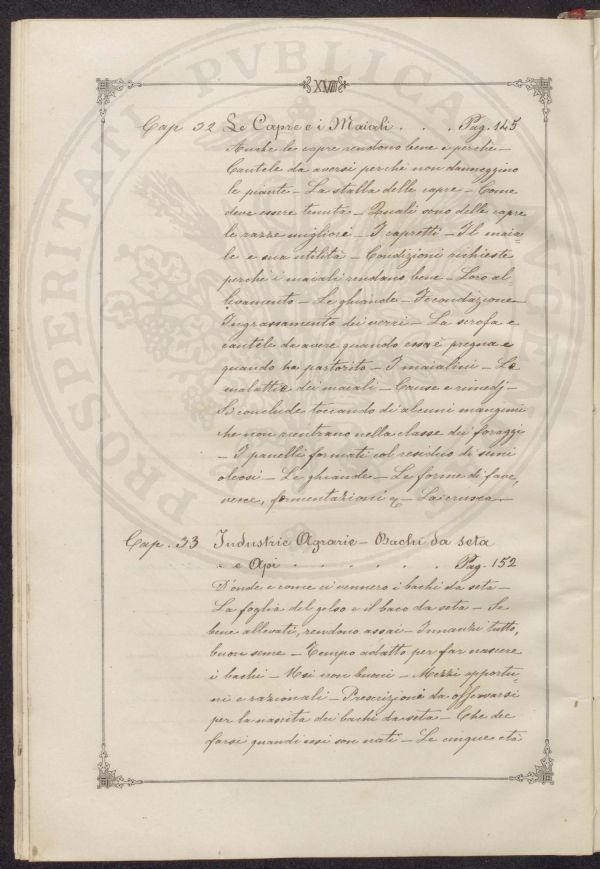 XVIII
Cap 32 Le Capre e i Maiali . . . Pag. 145
Anche le capre rendono bene e perchè –
Cautele da aversi perchè non danneggino
le piante – La stalla delle capre – Come
deve essere tenuta – Quali sono delle capre
le razze migliori – I capretti – Il maia=
le e sua utilità – Condizioni richieste
perchè i maiali rendano bene – Loro al
levamento – Le ghiande – Fecondazione –
Ingrassamento dei verri – La scrofa e
cautele da avere quando essa è pregna e
quando ha partorito – I maialini – Le
malattie dei maiali – Cause e rimedj –
Si conclude toccando di alcuni mangimi
che non rientrano nella classe dei foraggi
– I panelli formati col residuo di semi
oleosi – Le ghiande – Le forme di fave,
vecce, fermentazioni & – La crusca –
Cap. 33 Industrie Agrarie – Bachi da seta
e Api . . . . . . . Pag. 152
D'onde e come ci vennero i bachi da seta –
La foglia del gelso e il baco da seta – Se
bene allevati, rendono assai – Innanzi tutto,
buon seme – Tempo adatto per far nascere
i bachi – Usi non buoni – Mezzi opportu=
ni e razionali – Prescrizioni da osservarsi
per la nascita dei bachi da seta – Che dee
farsi quando essi son nati – Le cinque età
PROSPERITATI PVBLICAE AVGENDAE